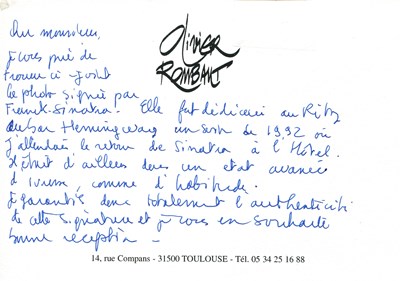 Cher monsieur,
OLIVIER
ROMBAUT
je vous prie de
trouver ci-joint
la photo signée par
Franck-Sinatra. Elle fut dédicacée au Ritz
au bar Hemingway un soir de 1992 où
j'attendais le retour de Sinatra à l'Hôtel.
Il était d'ailleurs dans un état avancé
d'ivresse, comme d'habitude.
Je garantis donc totalement l'authenticité
de cette signature et je vous en souhaite
bonne réception -
14, rue Compans - 31500 TOULOUSE - Tél. 05 34 25 16 88